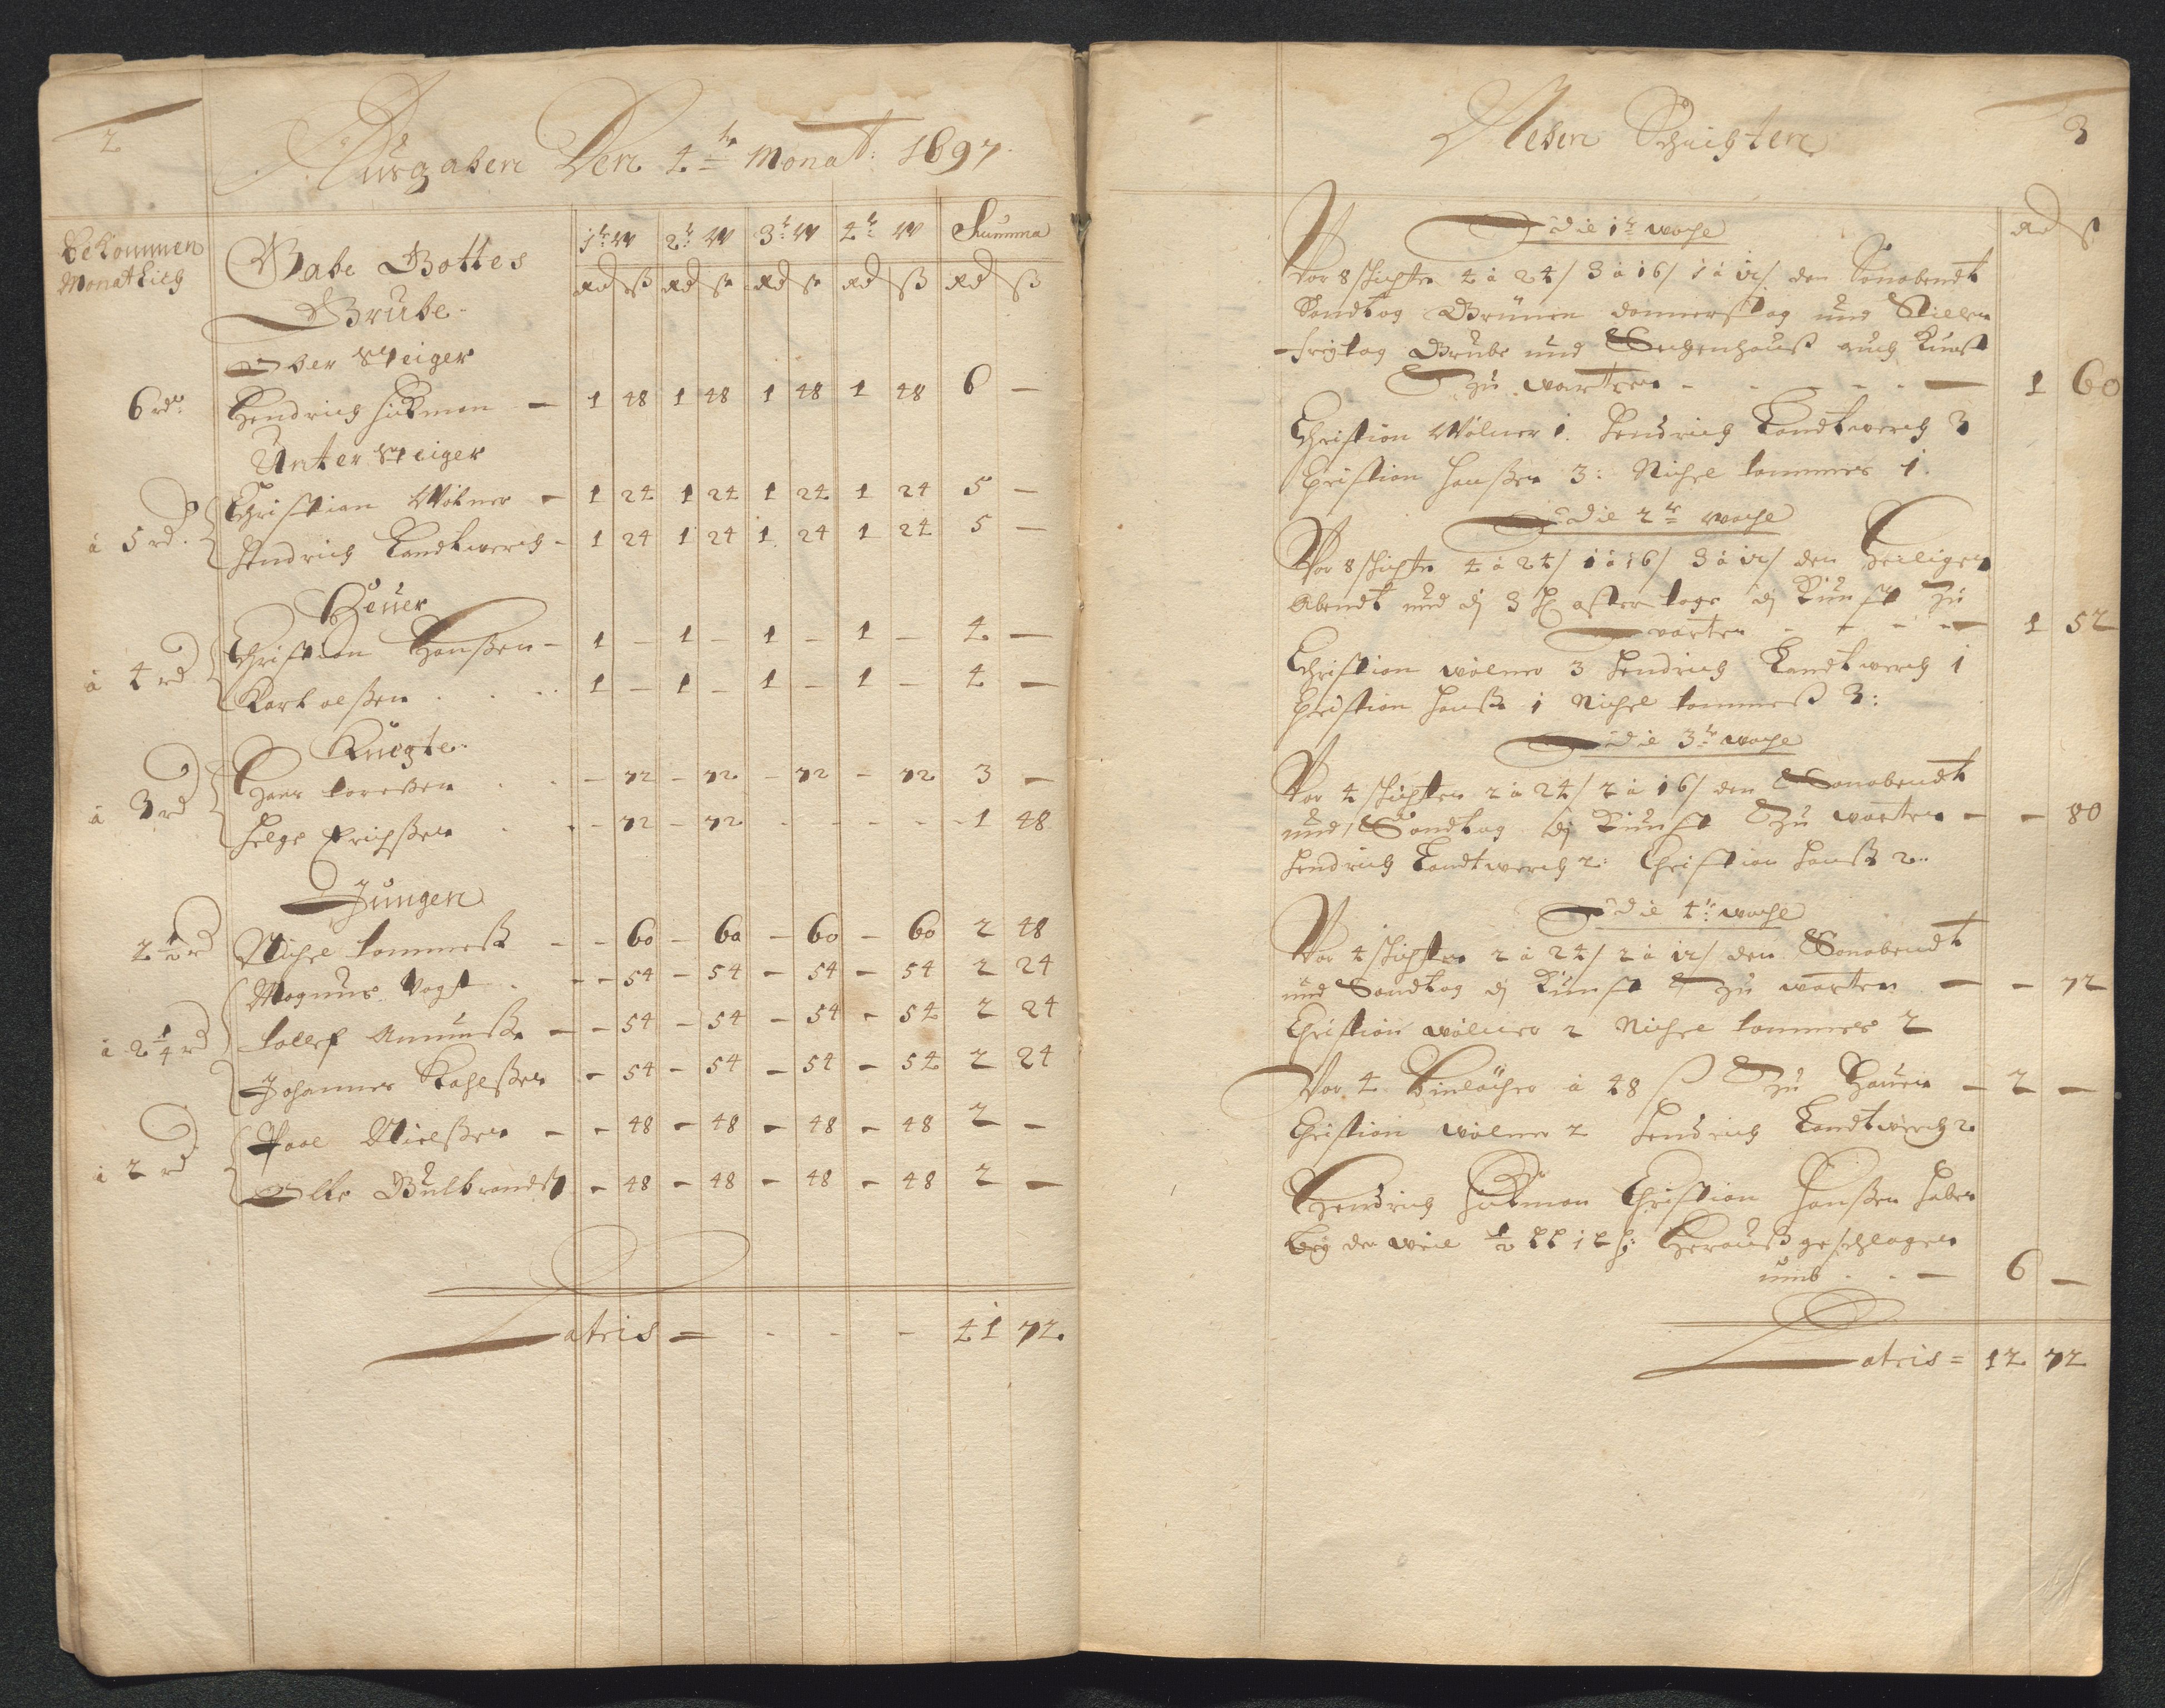 2
Ausgaben Den 4te Monat: 1697.
Bekommen Monatlich
Gabe Gottes
Grube
1te W 2te W 3te W 4te W Summa
Rd ß Rd ß Rd ß Rd ß Rd ß
Ober Steiger
6 rdr: Hendrich Hickman — 1 48 1 48 1 48 1 48 6 —
Unter Steiger
Christian Wölner — 1 24 1 24 1 24 1 24 5 —
à 5 rd. Hendrich Handtwerch - 1 24 1 24 1 24 1 24 5 —
Heuer
Christian Hanßen - 1 — 1 — 1 — 1 — 4 —
à 4 rd Karl olßen 1 — 1 — 1 — 1 — 4 —
Knechte
Hans Lorentzen — 72 — 72 — 72 — 72 3 —
à 3 rd Helge Erichßen — 72 — 72 - - - - 1 48
Jungen
2 1/2 rd Michel Lammerß - — 60 — 60 — 60 — 60 2 48
Magnus Vogt — 54 — 54 — 54 — 54 2 24
à 2 1/4 rd Tollef Amunß — 54 — 54 — 54 — 54 2 24
Johannes Kahlßen — 54 — 54 — 54 — 54 2 24
Paal Nielßen — 48 — 48 — 48 — 48 2 —
à 2 rd Olle Gulbrandß — 48 — 48 — 48 — 48 2 —
Latris — 41 72.
3
Neben Schichten
Rd ß
die 1te woche
Vor 8 Schichten 4 à 24/ 3 à 16/ 1 à 12/ den Sonabendt
Sondtag Grünen donnerstag und Stillen
freytag Grube und Zechenhauß auch Kunst
Zu warten - - - — 1 60
Christian Wölner 1. Hendrich Handtwerch 3
Christian Hanßen 3: Michel Lammers 1.
die 2te woche
Vor 8 Schichten 4 à 24/ 1 à 16/ 3 à 12/ den Heiligen
Abendt und di 3 oster tage di Kunst Zu
warten - - - — 1 52
Christian wölner 3 Hendrich Handtwerch 1
Christian Hanß 1 Michel Lammerß 3:
die 3te woche
Vor 4 Schichten 2 à 24/ 2 à 16/ den Sonabendt
und Sondtag di Kunst Zu warten — — 80
Hendrich Handtwerch 2: Christian Hanß 2..
die 4te woche
Vor 4 Schichten 2 à 24/ 2 à 12/ den Sonabendt
und Sondtag di Kunst Zu warten — — 72
Christian wölner 2 Michel Lammers 2
Vor 4 à 48 ß Zu Hauen — 2 —
Christian wölner 2 Hendrich Handtwerch 2
Hendrich Hickman Christian Hanßen haben
bey der weil 1/2 Herauß geschlagen
umb - - — 6 —
Latris = 12 72